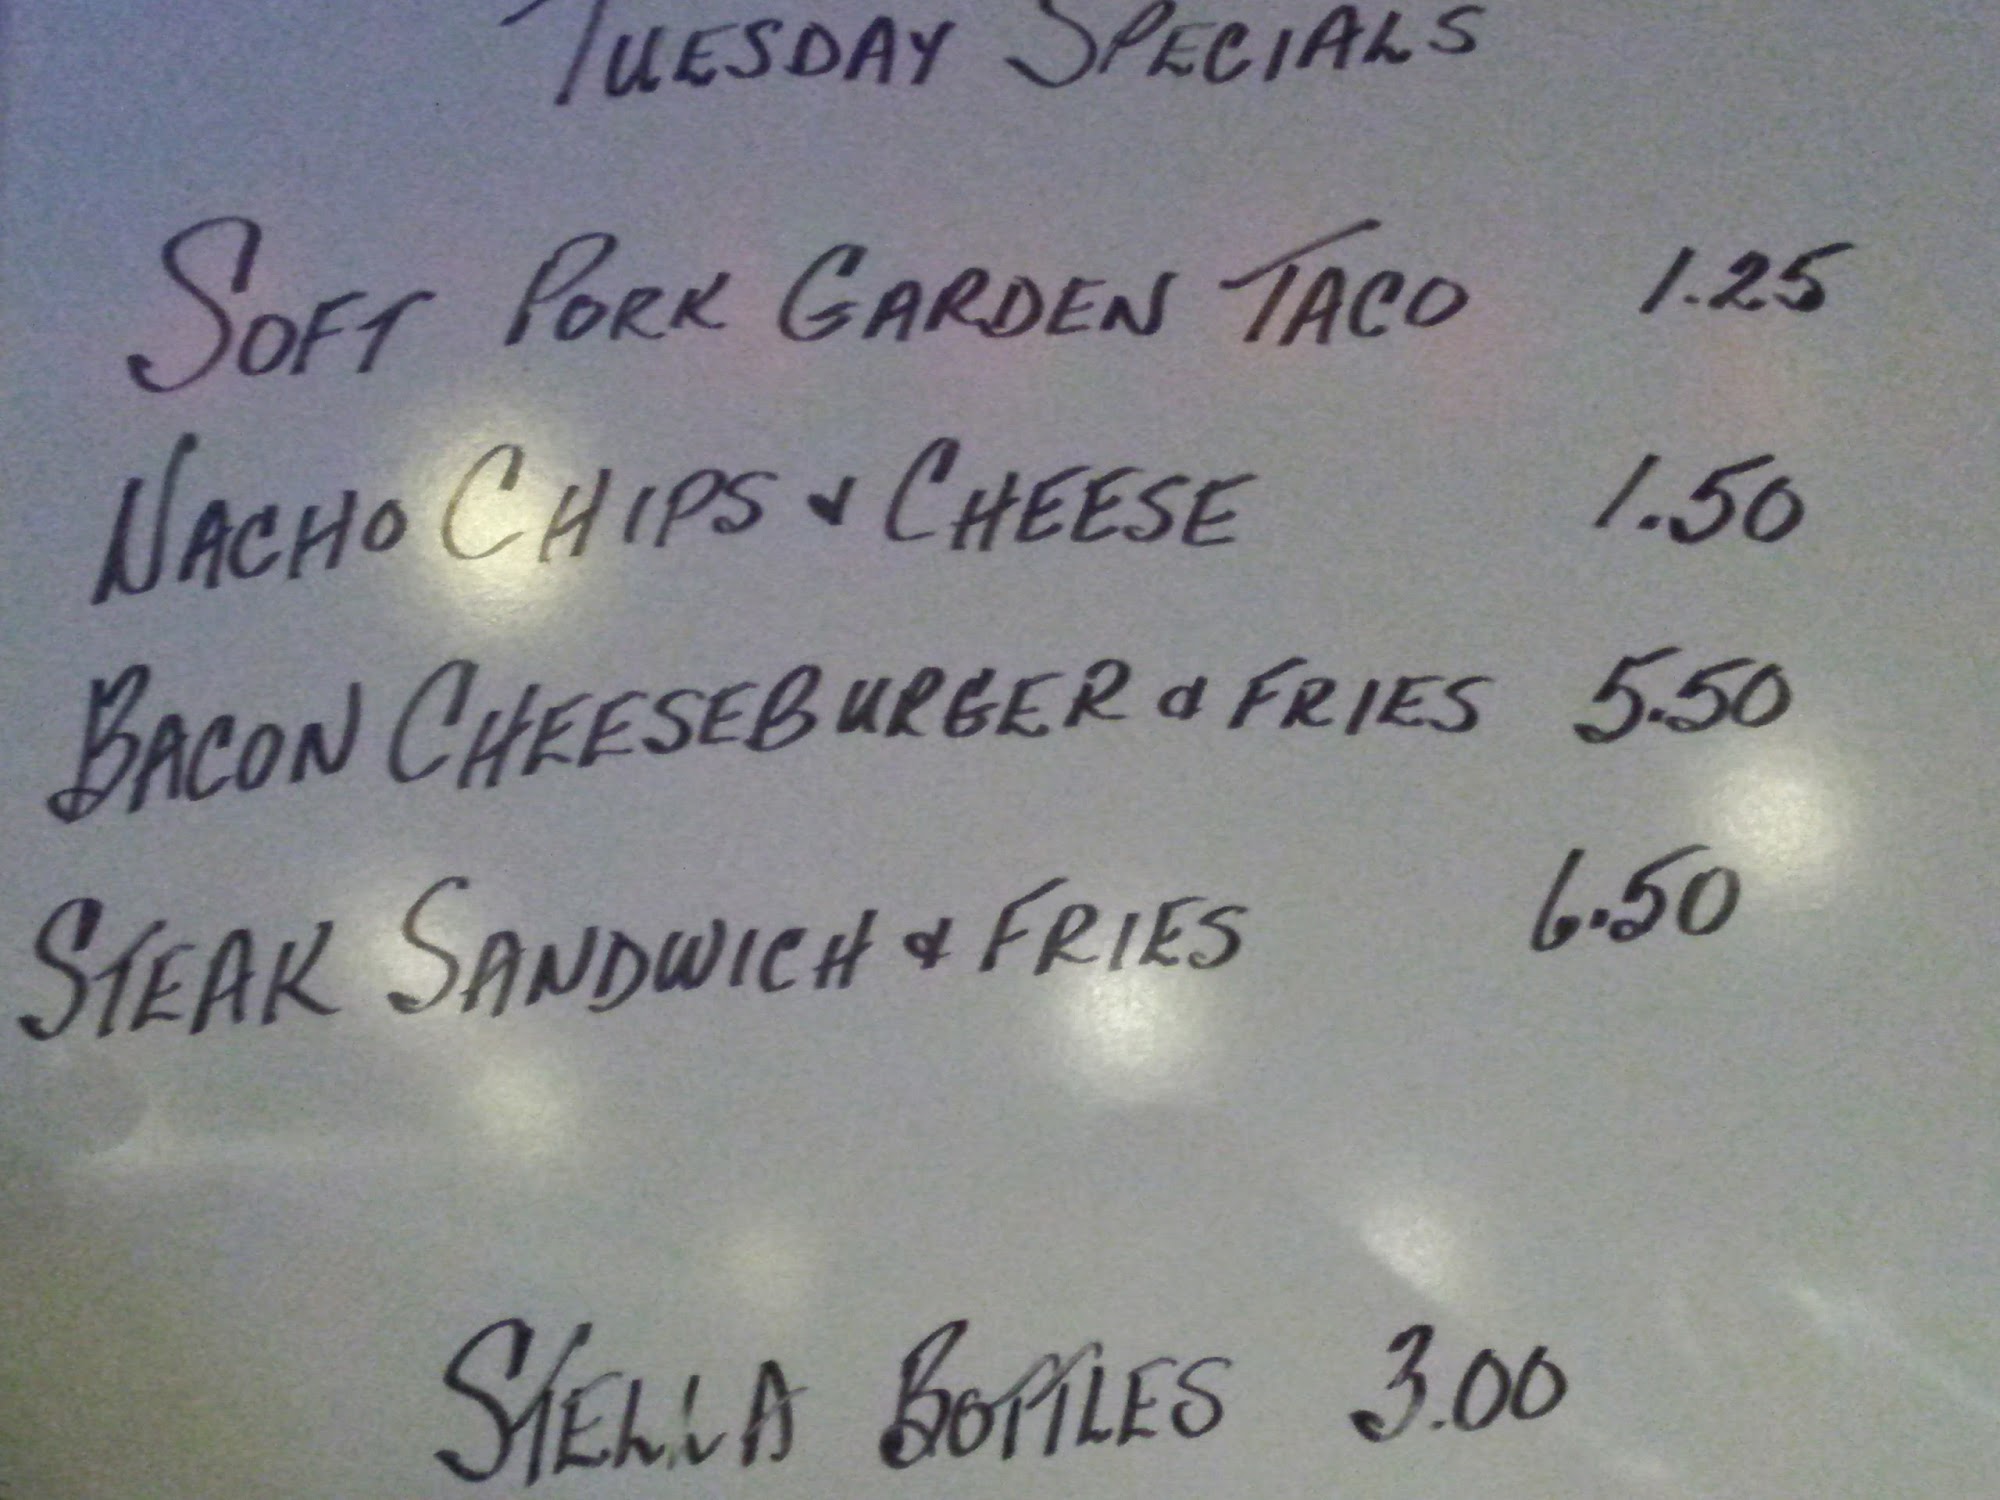 TUESDAY SPECIALS
SOFT PORK GARDEN TACO 1.25
NACHO CHIPS & CHEESE 1.50
BACON CHEESEBURGER & FRIES 5.50
STEAK SANDWICH & FRIES 6.50
STELLA BOTTLES 3.00